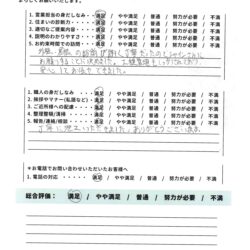 よろしくお願いいたします。
1. 営業担当の身だしなみ： 満足 / やや満足 / 普通 / 努力が必要 / 不満
2. 住まいの診断力： 満足 / やや満足 / 普通 / 努力が必要 / 不満
3. 適切なご提案内容： 満足 / やや満足 / 普通 / 努力が必要 / 不満
4. 説明のわかりやすさ： 満足 / やや満足 / 普通 / 努力が必要 / 不満
5. お約束時間での訪問： 満足 / やや満足 / 普通 / 努力が必要 / 不満
安心してお任せできました。
1. 職人の身だしなみ： 満足 / やや満足 / 普通 / 努力が必要 / 不満
2. 挨拶やマナー（私語など）： 満足 / やや満足 / 普通 / 努力が必要 / 不満
3. ご近所様への配慮： 満足 / やや満足 / 普通 / 努力が必要 / 不満
4. 整理整頓／清掃： 満足 / やや満足 / 普通 / 努力が必要 / 不満
5. 報告/連絡/相談： 満足 / やや満足 / 普通 / 努力が必要 / 不満
丁寧に施工いただきました。ありがとうございます。
＊お電話でお問い合わせいただいたお客様へ
1. 電話の対応： 満足 / やや満足 / 普通 / 努力が必要 / 不満
総合評価： 満足 / やや満足 / 普通 / 努力が必要 / 不満